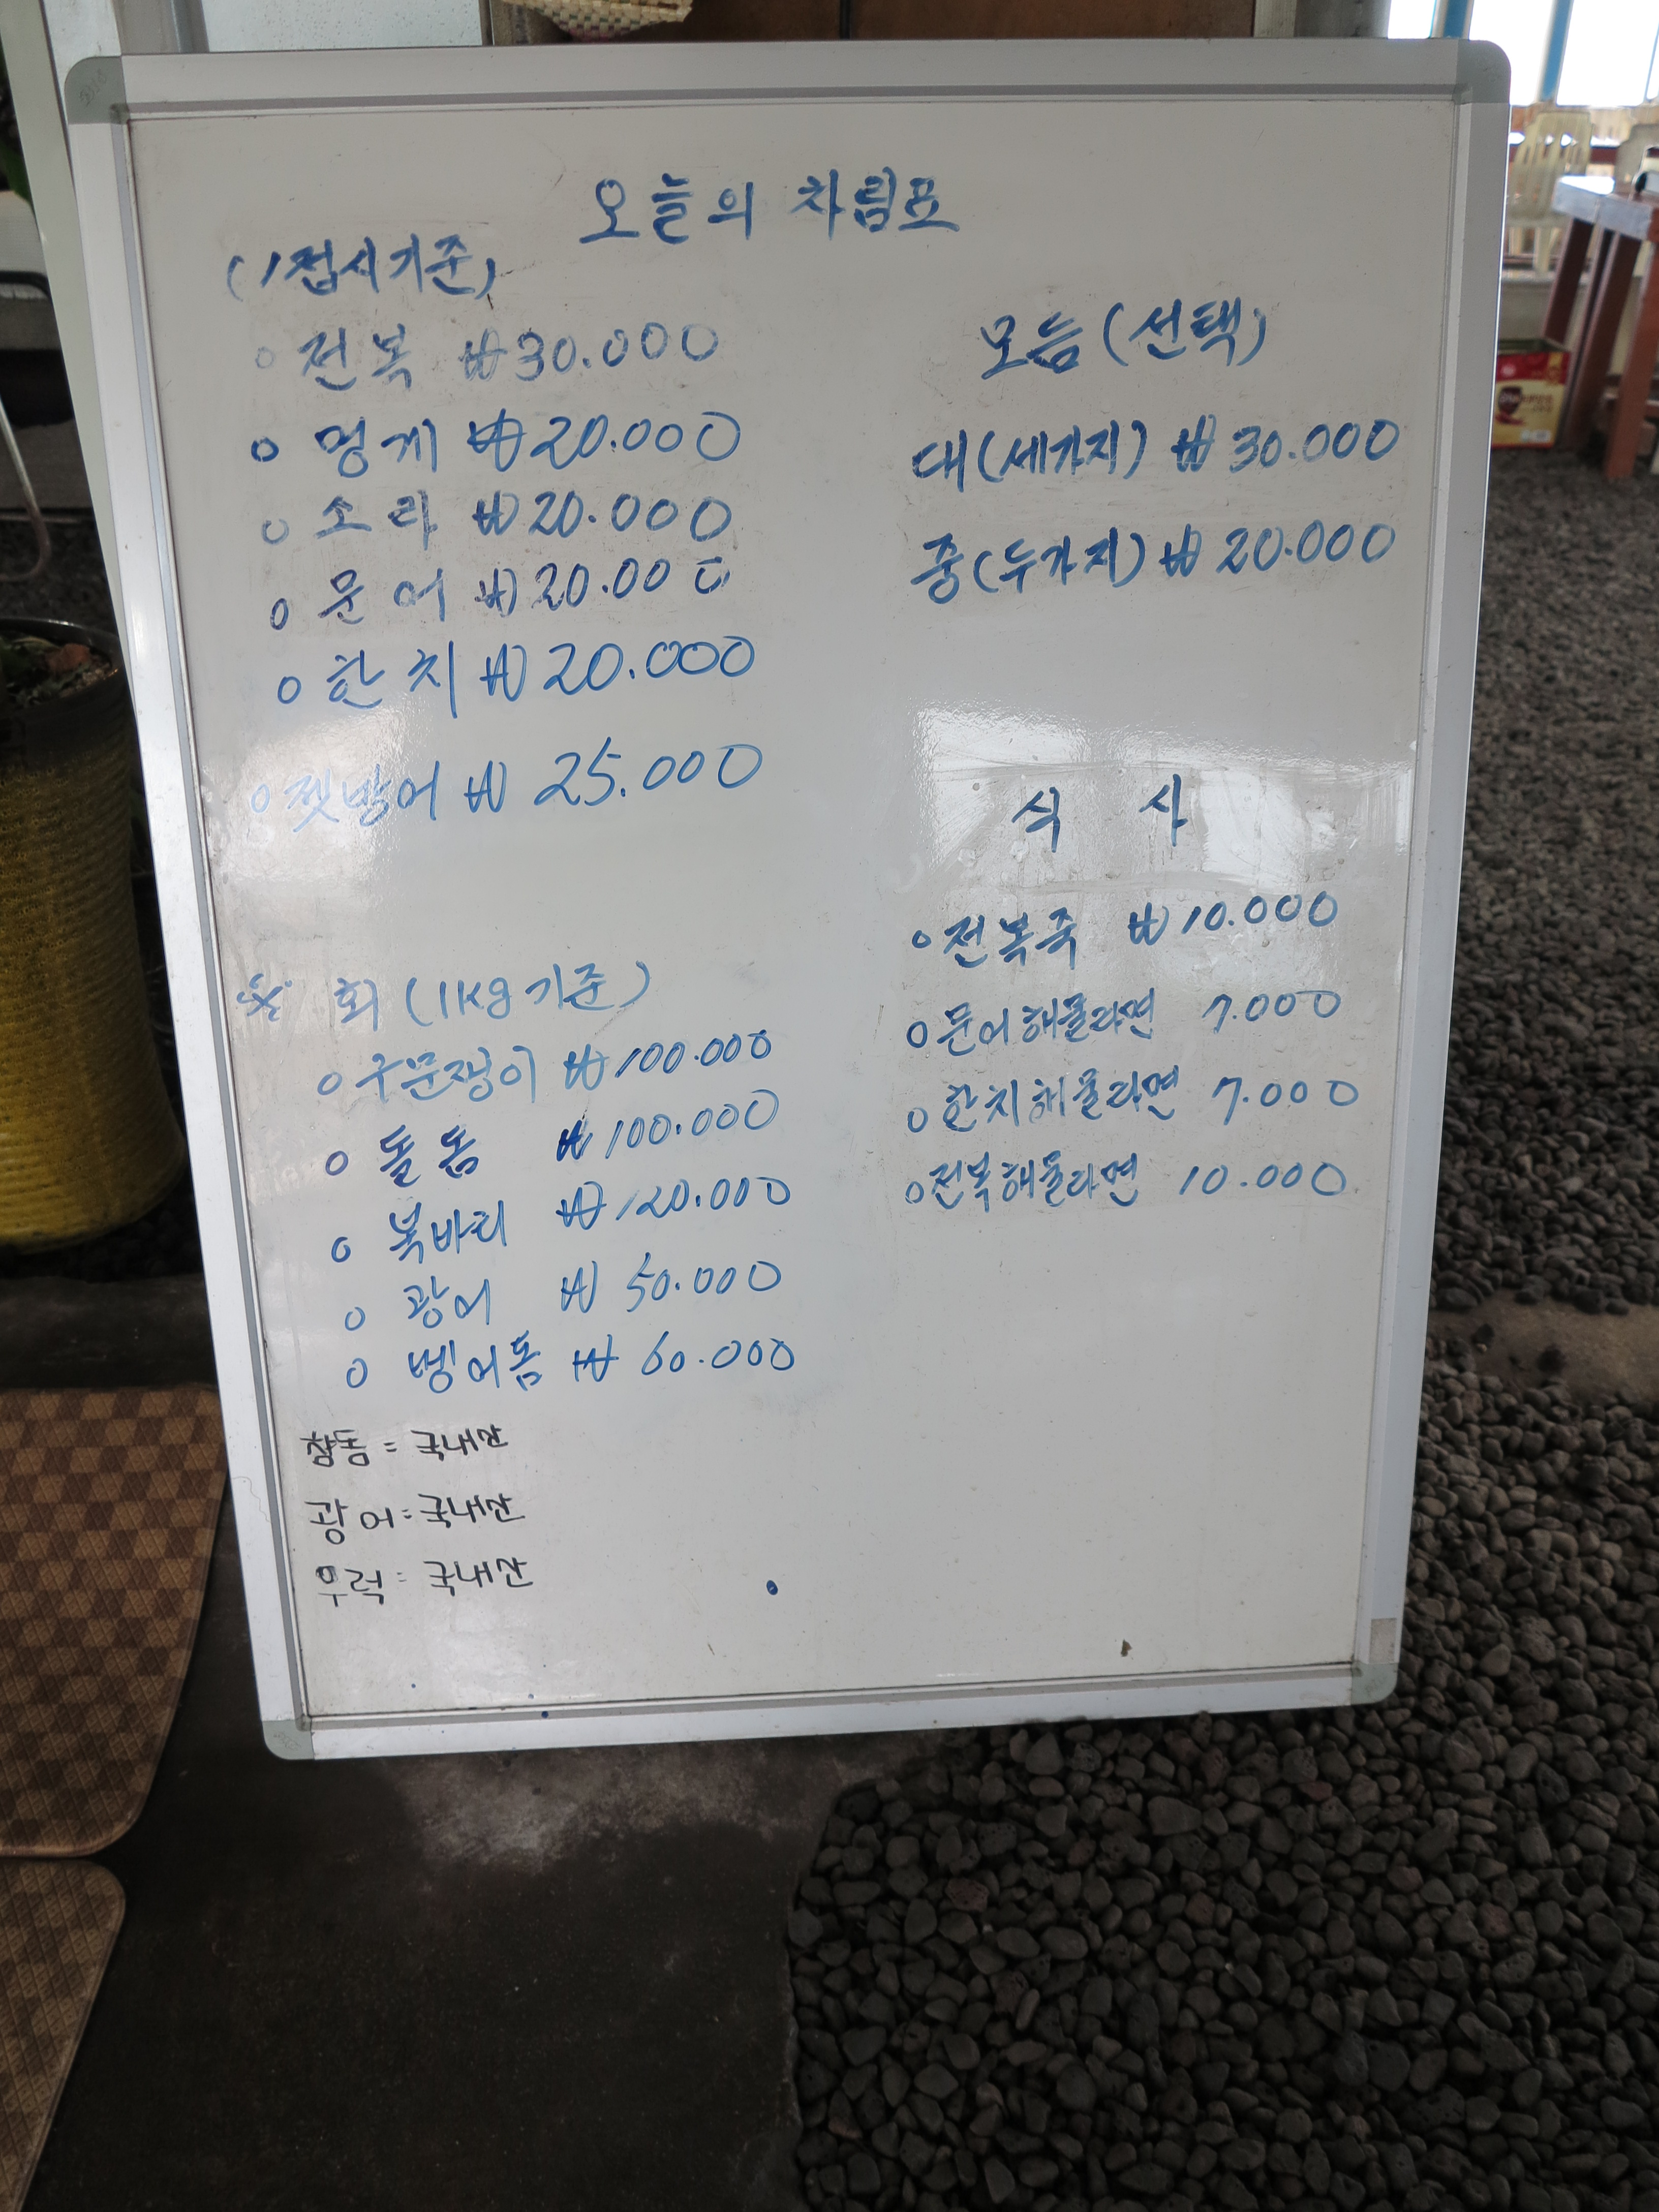 오늘의 차림표
(1접시기준)
○ 전복 ₩30.000
○ 멍게 ₩20.000
○ 소라 ₩20.000
○ 문어 ₩20.000
○ 한치 ₩20.000
○ 젯방어 ₩ 25.000
※ 회 (1kg 기준)
○ 구문쟁이 ₩100.000
○ 돌돔 ₩100.000
○ 북바리 ₩120.000
○ 광어 ₩ 50.000
○ 벵어돔 ₩ 60.000
참돔 = 국내산
광어 = 국내산
우럭 = 국내산
모듬 (선택)
대 (세가지) ₩ 30.000
중 (두가지) ₩ 20.000
식 사
○ 전복죽 ₩10.000
○ 문어해물라면 7.000
○ 한치해물라면 7.000
○ 전복해물라면 10.000